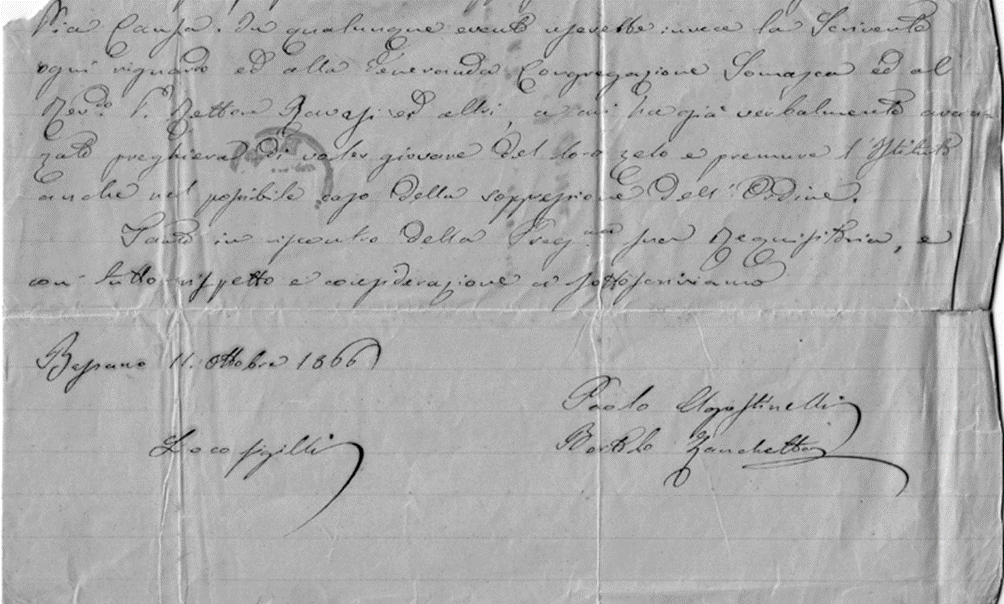 Pia Causa. In qualunque evento userebbe invece la Scrivente
ogni riguardo ed alla Veneranda Congregazione Somasca ed al
Rev.do P. Rettor Ravasi ed altri, a cui ha già verbalmente avan-
zato preghiera di voler giovare del loro zelo e premure l'Istituto
anche nel possibile caso della soppressione dell'Ordine.
Tanto in riscontro della Preg.ma sua Requisitoria, e
con tutto rispetto e considerazione ci sottoscriviamo
Bassano 11. Ottobre 1866
Paolo Agostinelli
Loco sigilli
Bortolo Zanchetta